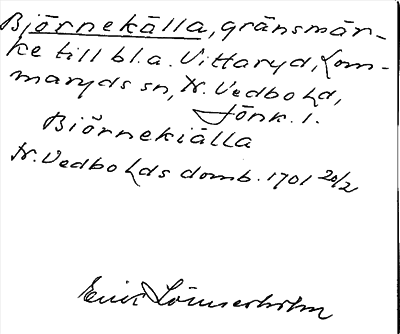 Björnekälla, gränsmär-
ke till bl.a. Vittaryd, Lom-
maryds sn, N. Vedbo hd,
Jönk. l.
Biörnekiälla
N. Vedbo hds domb. 1701 20/2
Erik